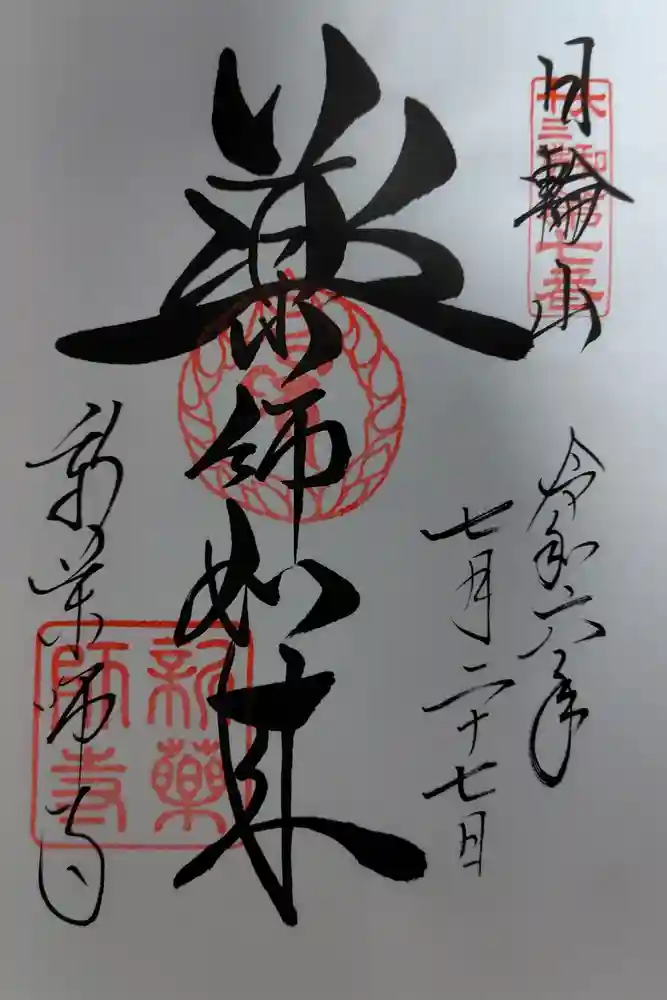 日輪山
令和六年
七月二十七日
薬師如来
新薬師寺
新薬師寺